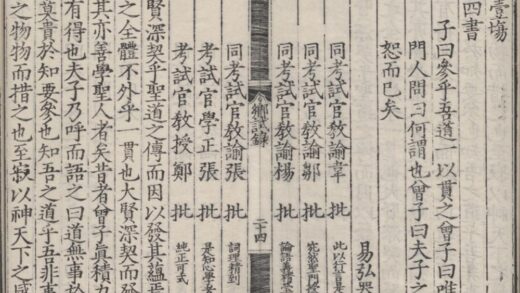 壹塲
四書
子曰參乎吾道一以貫之曾子曰唯
門人問曰何謂也曾子曰夫子之
恕而已矣
易弘器
同考試官教諭韋 批
同考試官教諭鄒 批 宛然聖門
同考試官教諭楊 批 論語義理
鄉試錄 二十四
同考試官教諭張 批 詞理精到
考試官學正張 批 是知心學者
考試官教授鄭 批 純正可式
賢深契乎聖道之傳而因以發其蘊焉
之全體不外乎一貫也大賢深契而發
其亦善學聖人者矣昔者曾子真積力
有得也夫子乃呼而語之曰道無事於
莫貴於知要參也知吾之道乎吾非事
之物物而措之也至寂以神天下之感